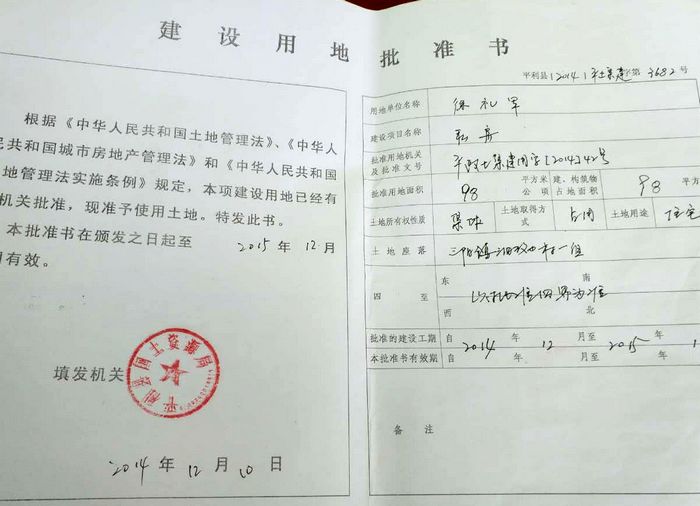 建设用地批准书
根据《中华人民共和国土地管理法》、《中华人
民共和国城市房地产管理法》和《中华人民共和国
地管理法实施条例》规定，本项建设用地已经有
机关批准，现准予使用土地。特发此书。
本批准书在颁发之日起至 2015 年 12 月
有效。
填发机关
平利县国土资源局
2014 年 12 月 10 日
平利县(2014)平土集建字第3682号
用地单位名称 徐礼军
建设项目名称 私房
批准用地机关及批准文号 平政土集建用字[2014]42号
批准用地面积 98 平方米 公顷 建、构筑物占地面积 98 平方
土地所有权性质 集体 土地取得方式 占用 土地用途 住宅
土地座落 三阳镇 村一组
四至 东 南 西 北
界为准
批准的建设工期 自 2014 年 12 月至 2015 年 1
本批准书有效期 自 年 月至 年
备注